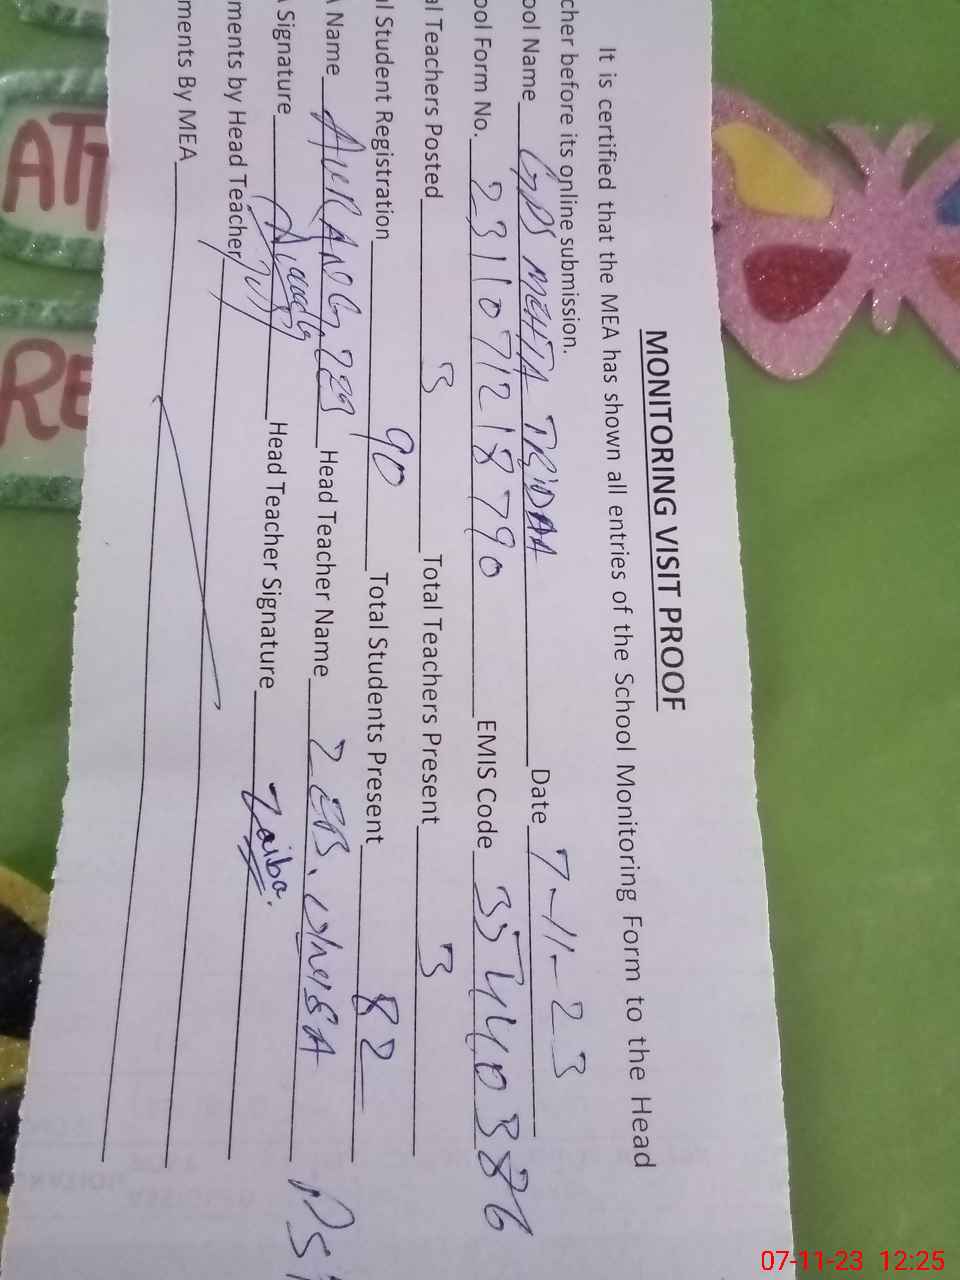 MONITORING VISIT PROOF
It is certified that the MEA has shown all entries of the School Monitoring Form to the Head
cher before its online submission.
ool Name GPS MEHTA TRIDAA Date 7-11-23
ool Form No. 2311071218790 EMIS Code 35440386
al Teachers Posted 3 Total Teachers Present 3
al Student Registration 90 Total Students Present 82
A Name AURANG ZEB Head Teacher Name ZEB.
A Signature Head Teacher Signature Zaiba.
ments by Head Teacher
ments By MEA
ATT
RE
07-11-23 12:25